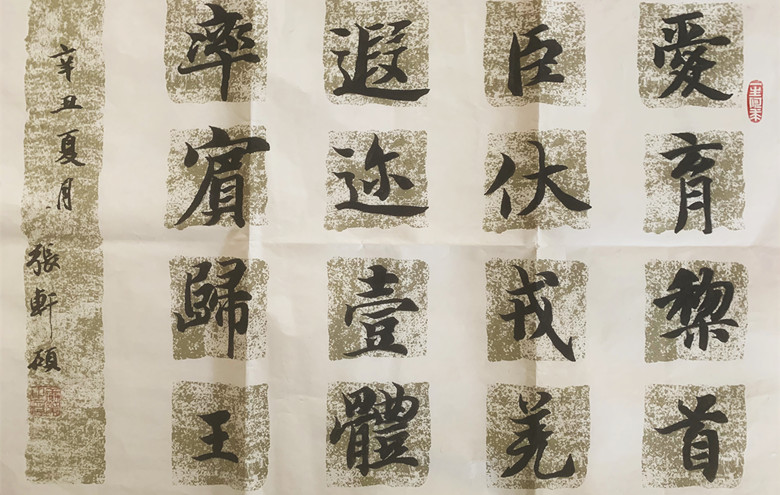 愛育黎首
臣伏戎羌
遐迩壹體
率賓歸王
辛丑夏月 張軒碩